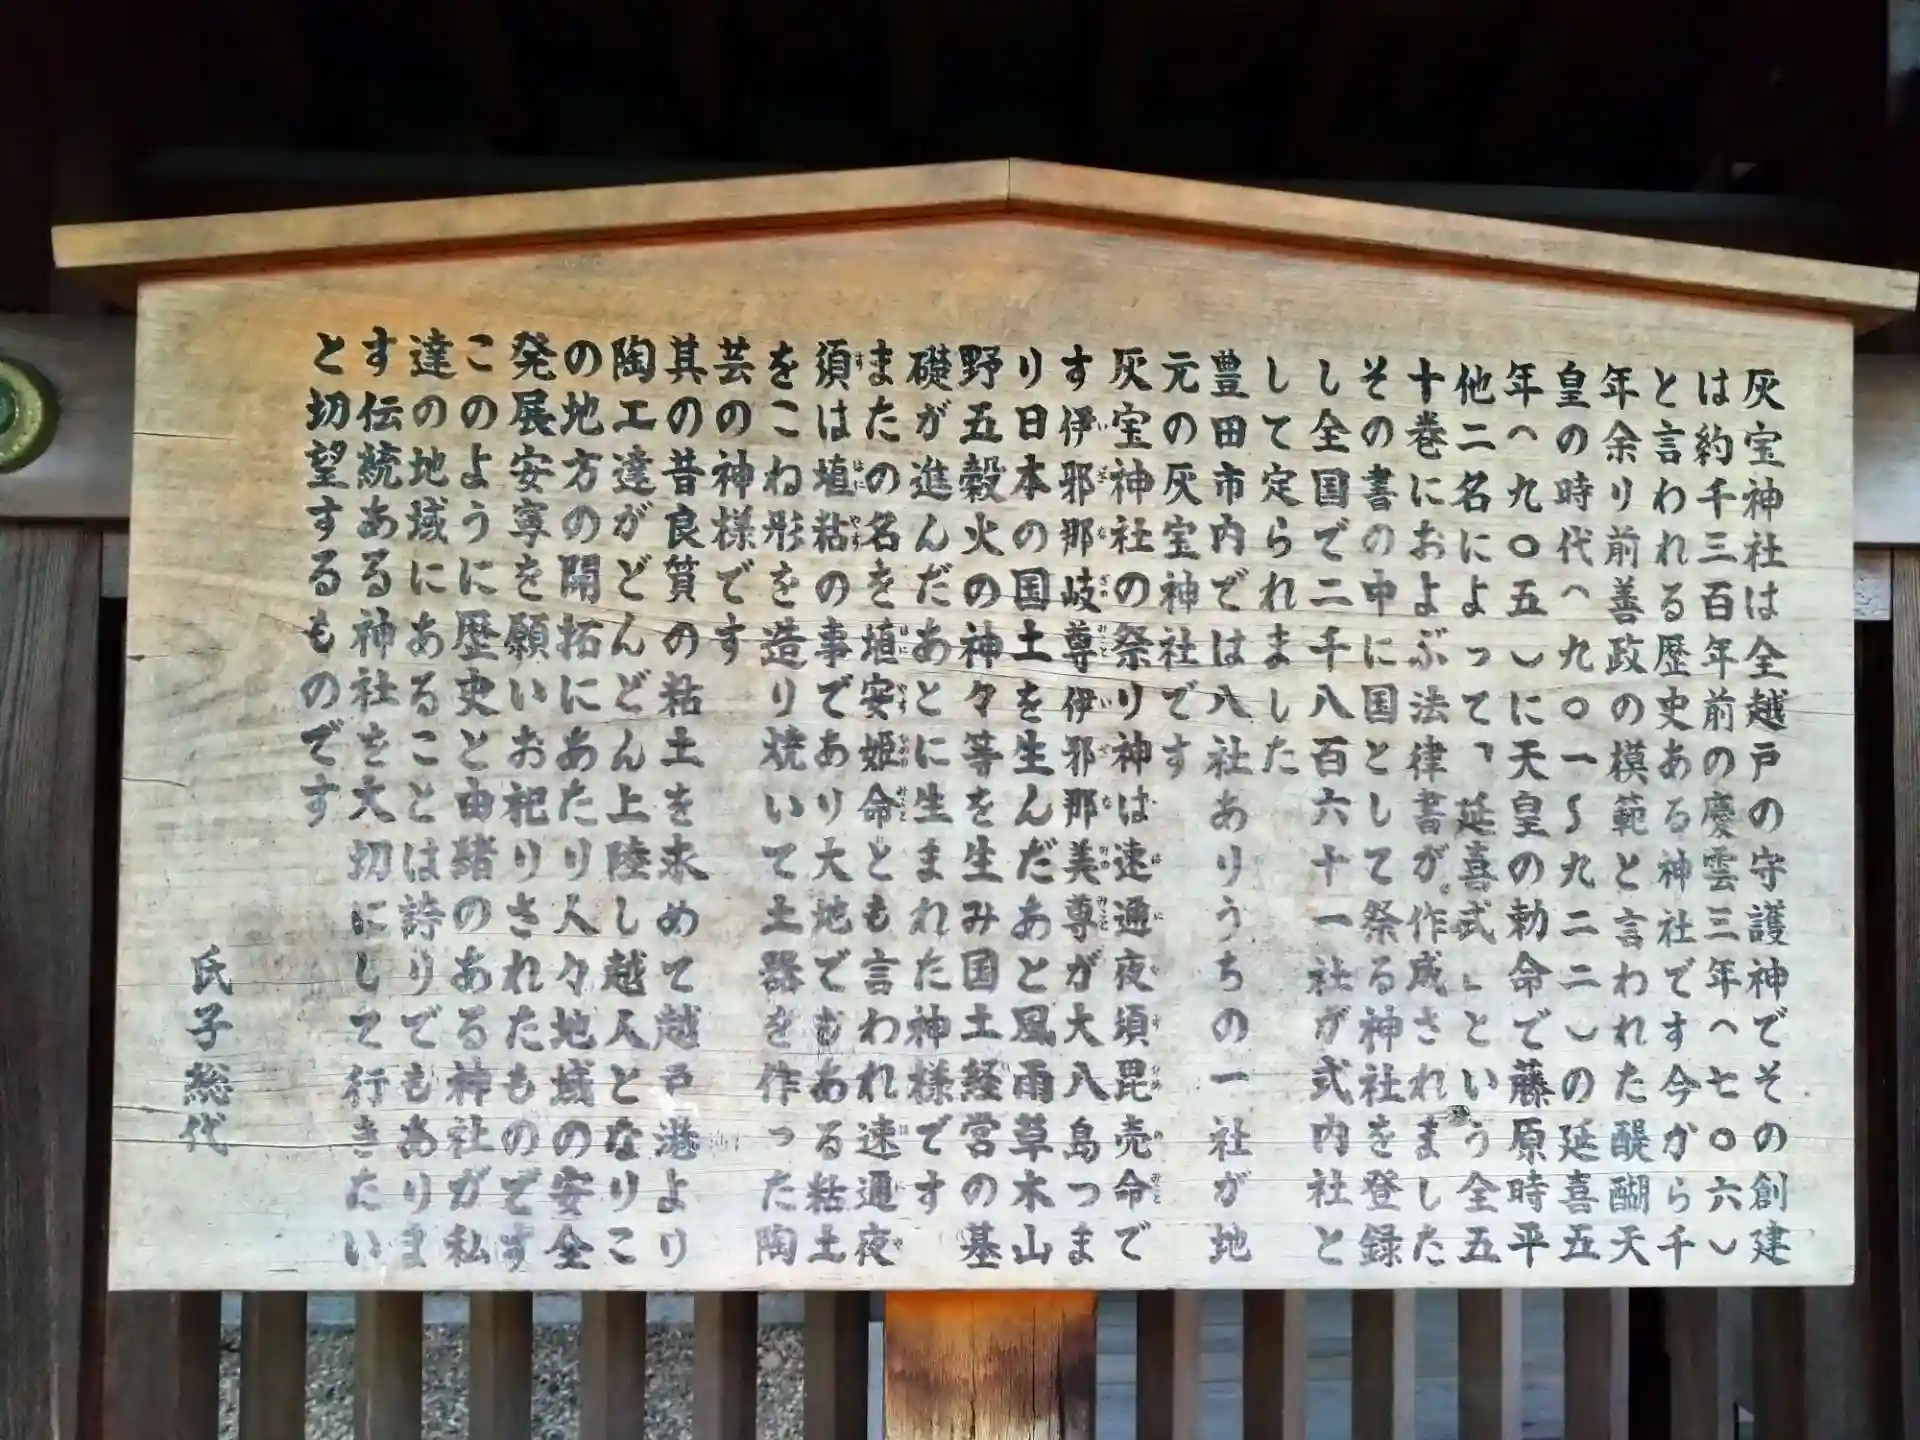 灰宝神社は全越戸の守護神でその創建
は約千三百年前の慶雲三年(七〇六)
と言われる歴史ある神社です今から千
年余り前善政の模範と言われた醍醐天
皇の時代(九〇一〜九二二)の延喜五
年(九〇五)に天皇の勅命で藤原時平
他二名によって「延喜式」という全五
十巻におよぶ法律書が作成されました
その書の中に国として祭る神社を登録
し全国で二千八百六十一社が式内社と
して定られました
豊田市内では八社ありうちの一社が地
元の灰宝神社です
灰宝神社の祭り神は速通夜須毘売命で
す伊邪那岐尊伊邪那美尊が大八島つま
り日本の国土を生んだあと風雨草木山
野五穀火の神々等を生み国土経営の基
礎が進んだあとに生まれた神様です
またの名を埴安姫命とも言われ速通夜
須は埴粘の事であり大地でもある粘土
をこね形を造り焼いて土器を作った陶
芸の神様です
其の昔良質の粘土を求めて越戸港より
陶工達がどんどん上陸し越人となりこ
の地方の開拓にあたり人々地域の安全
発展安寧を願いお祀りされたものです
このように歴史と由緒のある神社が私
達の地域にあることは誇りでもありま
す伝統ある神社を大切にして行きたい
と切望するものです
氏子総代